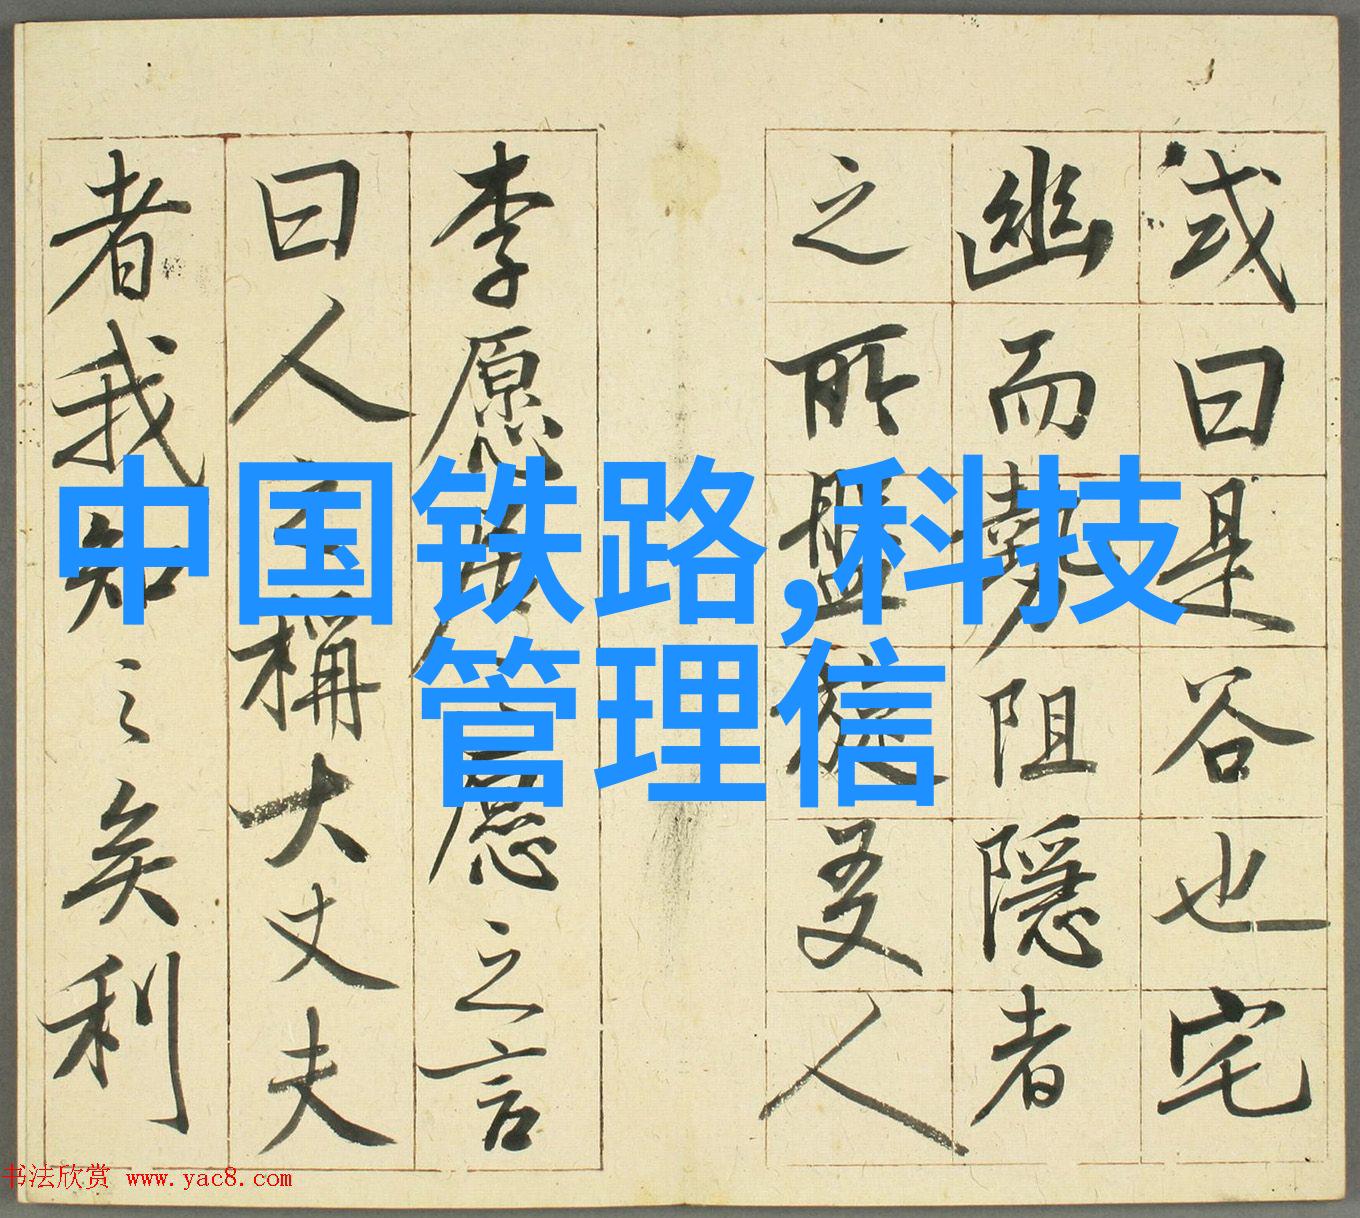 或曰是谷也宅
幽而勢阻隱者
之所盤旋友人
李愿居之愿之言
曰人之稱大丈夫
者我知之矣利
中国铁路,科技
管理信
书法欣赏 www.yac8.com